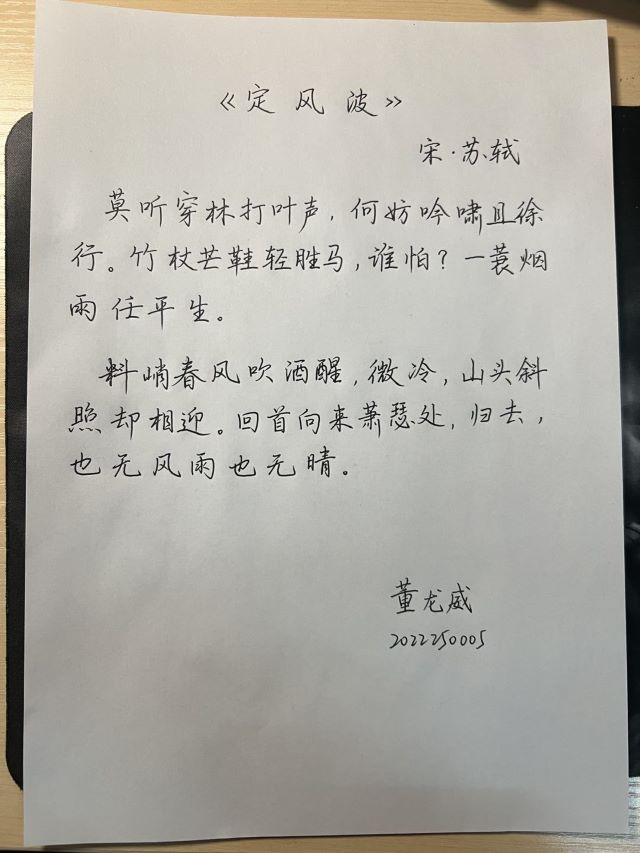 《定风波》
宋·苏轼
莫听穿林打叶声，何妨吟啸且徐
行。竹杖芒鞋轻胜马，谁怕？一蓑烟
雨任平生。
料峭春风吹酒醒，微冷，山头斜
照却相迎。回首向来萧瑟处，归去，
也无风雨也无晴。
董龙威
2022250005